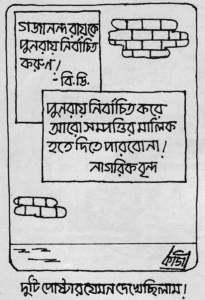 গজানন্দ রায়কে
পুনরায় নির্বাচিত
করুন!
- বি.তি.
পুনরায় নির্বাচিত করে
আরো সম্পত্তির মালিক
হতে দিতে পারবোনা!
নাগরিকবৃন্দ
দুটি পোষ্টার যেমন দেখেছিলাম!